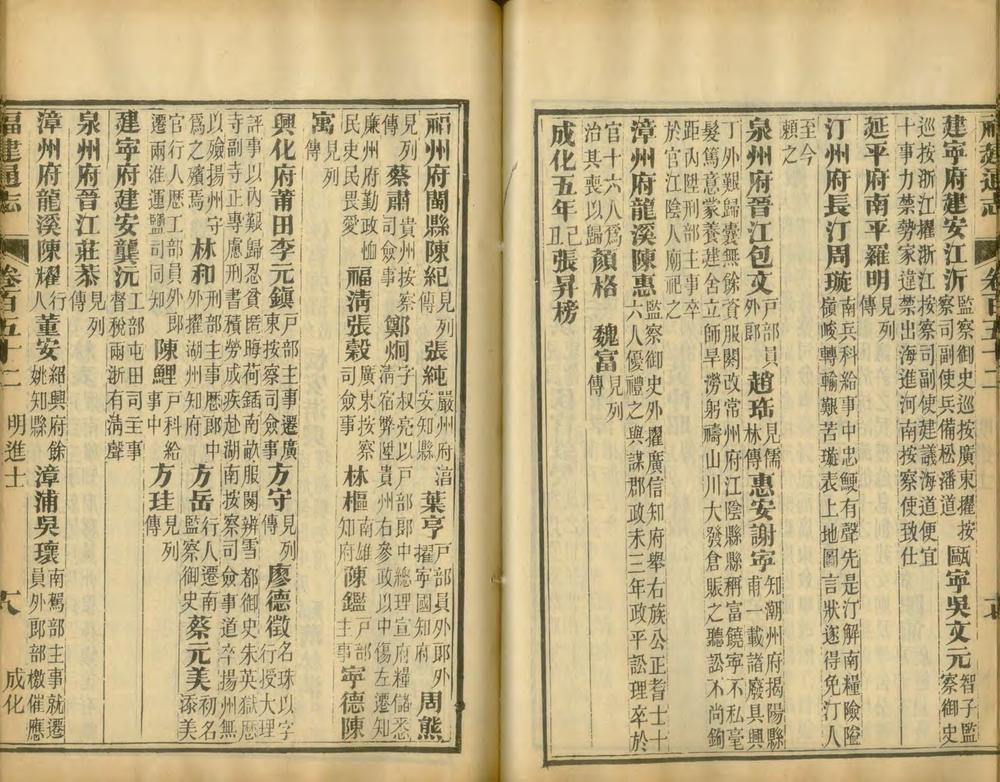 福建通志 卷百五十二
建寧府建安江沂 監察御史巡按廣東擢按察司副使兵備松潘道 甌寧吳文元 智子監察御史
巡按浙江擢浙江按察司副使建議海道便宜十事力禁勢家違禁出海進河南按察使致仕
延平府南平羅明 見列傳
汀州府長汀周璇 南兵科給事中忠鯁有聲先是汀解南糧險隘嶺峻轉輸艱苦璇表上地圖言狀遂得免汀人
至今賴之
泉州府晉江包文 戶部員外郎 趙珤 見儒林傳 惠安謝寧 知潮州府揭陽縣甫一載諸廢具興
丁外艱歸囊無餘資服闋改常州府江陰縣縣稱富饒寧不私毫髮篤意蒙養建舍立師旱澇躬禱山川大發倉賑之聽訟不尚鉤
距內陞刑部主事卒於官江陰人廟祀之
漳州府龍溪陳惠 監察御史外擢廣信知府舉右族公正耆士十六人優禮之與謀郡政未三年政平訟理卒於
官十六人爲治其喪以歸 顏格 魏富 見列傳
成化五年己丑張昇榜
福州府閩縣陳紀 見列傳 張純 嚴州府淯安知縣 葉亨 戶部員外郎外擢寧國知府 周熊
見列傳 蔡肅 貴州按察司僉事 鄭炯 字叔亮以戶部郎中總理宣府糧儲悉清宿弊陞貴州右參政以中傷左遷知
廉州府勤政恤民吏民畏愛 福清張穀 廣東按察司僉事 林樞 南雄知府 陳鑑 戶部主事 寧德陳
寓 見列傳
興化府莆田李元鎮 戶部主事遷廣東按察司僉事 方守 見列傳 廖德徵 名珠以字行授大理
評事以內艱歸忍貧匿晦荷鍤南畝服闋辨雪都御史朱英獄歷寺副寺正專慮刑書積勞成疾赴湖南按察司僉事道卒揚州無
以殮揚州守爲之殯焉 林和 刑部主事歷郎中外擢湖州知府 方岳 行人遷南監察御史 蔡元美 初名添美
官行人歷工部員外郎遷兩淮運鹽司同知 陳鯉 戶科給事中 方珪 見列傳
建寧府建安龔沅 工部屯田司主事督稅兩浙有清聲
泉州府晉江莊恭 見列傳
漳州府龍溪陳耀 行人 董安 紹興府餘姚知縣 漳浦吳瓌 南駕部主事就遷員外郎部檄催應
福建通志 卷百五十二 明進士 成化